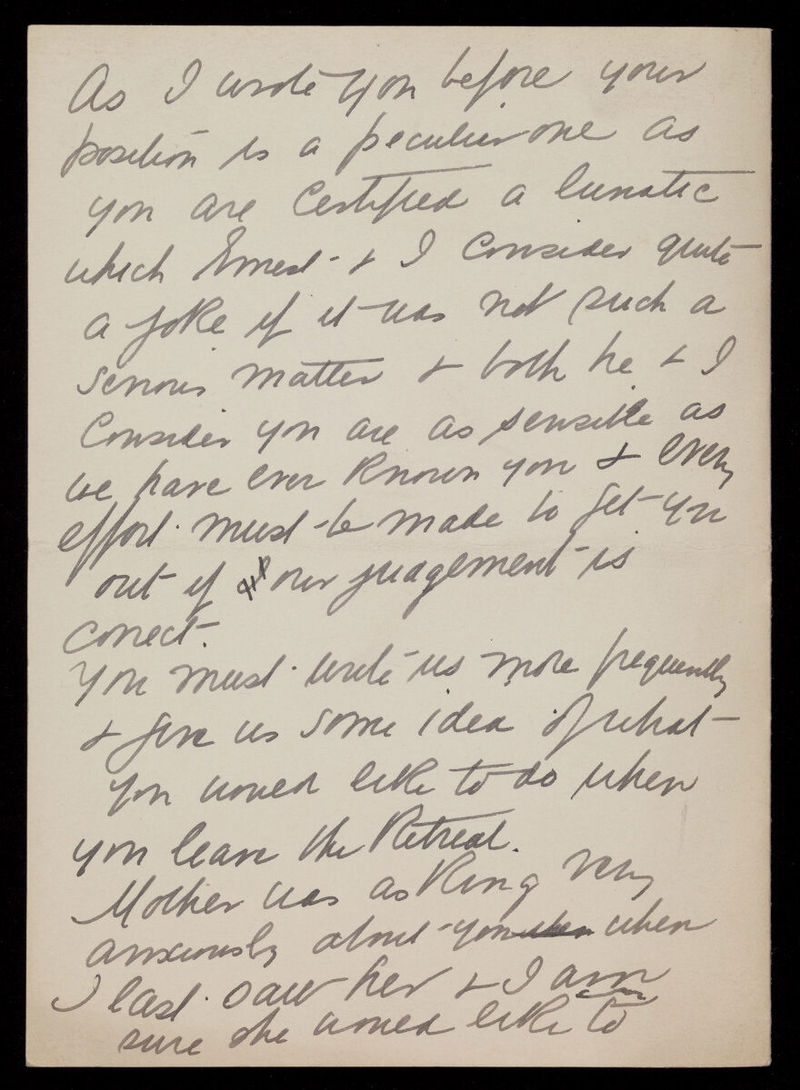 As I wrote you before your
position is a peculiar one as
you are certified a lunatic
which Ernest & I consider quite
a joke if it was not such a
serious matter & both he & I
consider you are as sensible as
we have ever known you & every
effort must be made to get you
out if our judgement is
correct.
You must write us more frequently
& give us some idea of what
you would like to do when
you leave the Retreat.
Mother was asking very
anxiously about you when when
I last saw her & I am
sure she would like to